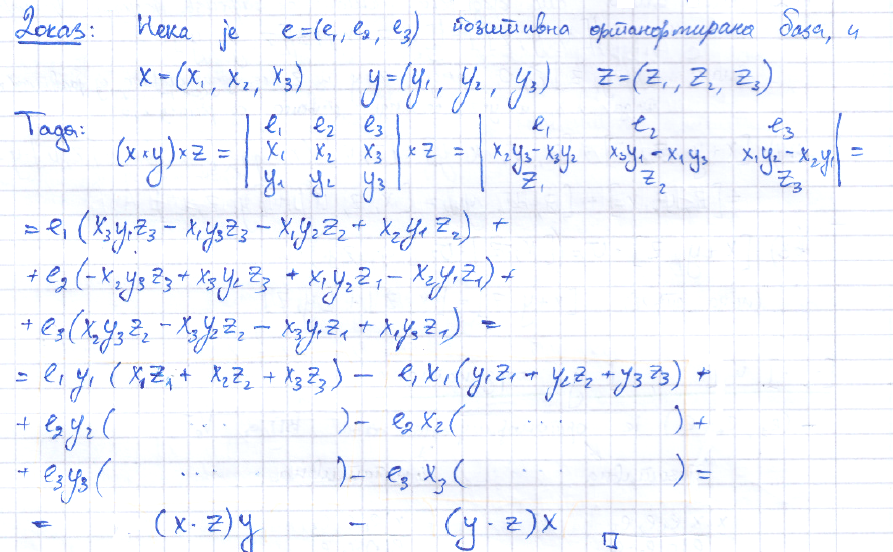 Доказ: Нека је e=(e₁, e₂, e₃) позитивна ортонормирана база, и
x=(x₁, x₂, x₃) y=(y₁, y₂, y₃) z=(z₁, z₂, z₃)
Тада:
(x×y)×z = | e₁ e₂ e₃ ; x₁ x₂ x₃ ; y₁ y₂ y₃ | ×z = | e₁ e₂ e₃ ; x₂y₃-x₃y₂ x₃y₁-x₁y₃ x₁y₂-x₂y₁ ; z₁ z₂ z₃ | =
=e₁(x₃y₁z₃ - x₁y₃z₃ - x₁y₂z₂ + x₂y₁z₂) +
+e₂(-x₂y₃z₃ + x₃y₂z₃ + x₁y₂z₁ - x₂y₁z₁) +
+e₃(x₂y₃z₂ - x₃y₂z₂ - x₃y₁z₁ + x₁y₃z₁) =
= e₁y₁(x₁z₁ + x₂z₂ + x₃z₃) - e₁x₁(y₁z₁ + y₂z₂ + y₃z₃) +
+ e₂y₂( ... ) - e₂x₂( ... ) +
+ e₃y₃( ... ) - e₃x₃( ... ) =
= (x·z)y - (y·z)x □